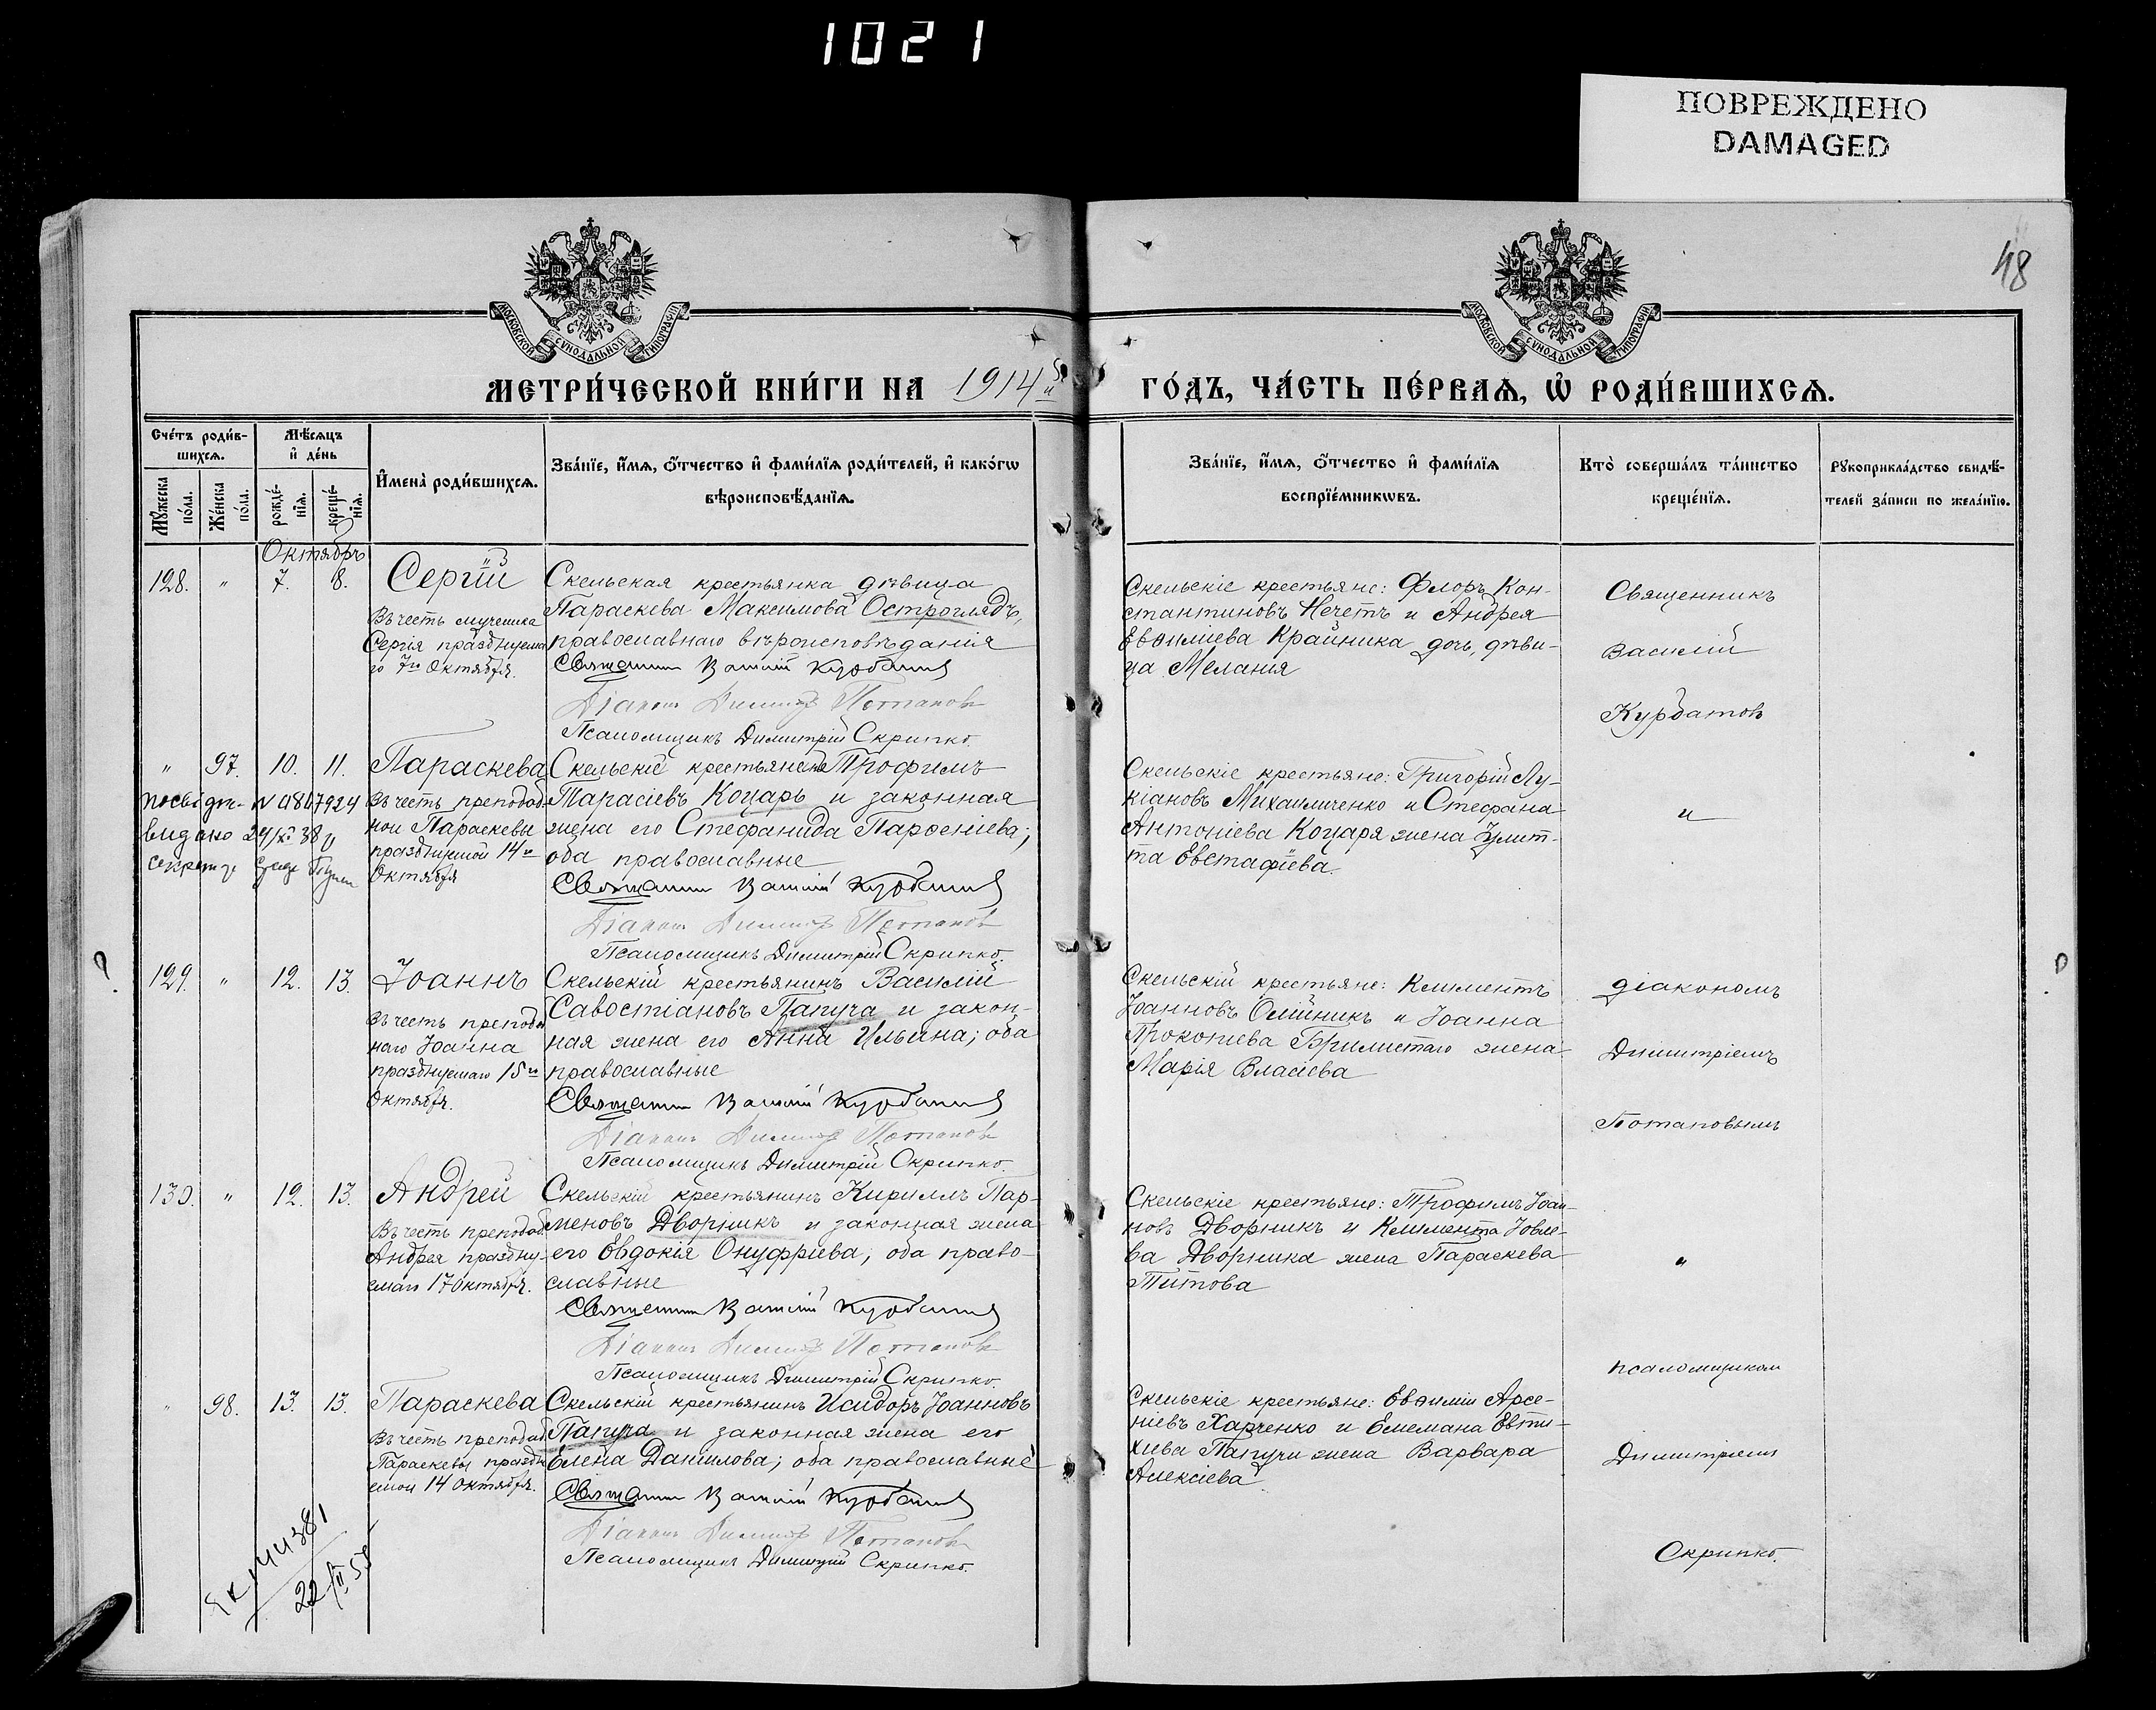 1021
ПОВРЕЖДЕНО
DAMAGED
48
МОСКОВСКОЙ СѴНОДАЛЬНОЙ ТИПОГРАФІИ
МОСКОВСКОЙ СѴНОДАЛЬНОЙ ТИПОГРАФІИ
МЕТРИ́ЧЕСКОЙ КНИ́ГИ НА 1914й ГО́ДЪ, ЧА́СТЬ ПЕ́РВАѦ, Ѡ҆ РОДИ́ВШИХСѦ.
Сче́тъ роди́в-
шихсѧ.
Мꙋ́жеска по́ла.
Же́нска по́ла.
Мѣ́сѧцъ
и҆ де́нь
рожде́-
нїѧ.
креще́-
нїѧ.
И҆мена̀ роди́вшихсѧ.
Зва́нїе, и҆́мѧ, о҆́тчество и҆ фамѝлїѧ роди́телей, и҆ како́гѡ
вѣроисповѣ́данїѧ.
Зва́нїе, и҆́мѧ, о҆́тчество и҆ фамѝлїѧ
воспрїе́мникѡвъ.
Кто̀ соверша́лъ та́инство
креще́нїѧ.
Рꙋкоприкла́дство свидѣ́-
телей за́писи по жела́нїю.
Октябрь
128. " 7. 8. Сергій
Въ честь мученика
Сергія празднуема
го 7го Октября.
Скельская крестьянка дѣвица
Параскева Максимова Остроглядъ,
православнаго вѣроисповѣданія
Священникъ Василій Курбатовъ
Діаконъ Димитрій Потаповъ
Псаломщикъ Димитрій Скрипко.
Скельскіе крестьяне: Флоръ Кон-
стантиновъ Нечетъ и Андрея
Евѳиміева Крайника дочь, дѣви-
ца Меланія
Священникъ
Василій
Курбатовъ
" 97. 10. 11. Параскева
Въ честь преподоб
ной Параскевы
празднуемой 14го
Октября
Скельскіе крестьяне Трофимъ
Тарасіевъ Коцарь и законная
жена его Стефанида Парѳеніева;
оба православные
Священникъ Василій Курбатовъ
Діаконъ Димитрій Потаповъ
Псаломщикъ Димитрій Скрипко.
Скельскіе крестьяне: Григорій Лу-
кіановъ Михайличенко и Стефана
Антоніева Коцаря жена Іулит-
та Евстафіева.
"
129. " 12. 13. Іоаннъ
Въ честь преподо
наго Іоанна
празднуемаго 15го
Октября.
Скельскій крестьянинъ Василій
Савостіановъ Папуча и закон-
ная жена его Анна Ильина; оба
православные
Священникъ Василій Курбатовъ
Діаконъ Димитрій Потаповъ
Псаломщикъ Димитрій Скрипко.
Скельскій крестьяне: Климентъ
Іоанновъ Олійникъ и Іоанна
Прокопіева Брилистаго жена
Марія Власіева
діакономъ
Димитріемъ
Потаповымъ
130. " 12. 13. Андрей
Въ честь преподоб
Андрея праздну-
емаго 17 Октября.
Скельскій крестьянинъ Кириллъ Пар-
меновъ Дворникъ и законная жена
его Евдокія Онуфріева, оба право-
славные
Священникъ Василій Курбатовъ
Діаконъ Димитрій Потаповъ
Псаломщикъ Димитрій Скрипко.
Скельскіе крестьяне: Трофимъ Іоан-
новъ Дворникъ и Климента Іовле-
ва Дворника жена Параскева
Титова
"
" 98. 13. 13. Параскева
Въ честь преподоб
Параскевы праздну
емой 14 Октября.
Скельскій крестьянинъ Исидоръ Іоанновъ
Папуча и законная жена его
Елена Даніилова; оба православные
Священникъ Василій Курбатовъ
Діаконъ Димитрій Потаповъ
Псаломщикъ Димитрій Скрипко.
Скельскіе крестьяне: Евѳимій Арсе-
ніевъ Харченко и Емемана Евти-
хіева Папучи жена Варвара
Алексіева
псаломщикомъ
Димитріемъ
Скрипко.
44381
22/II 55